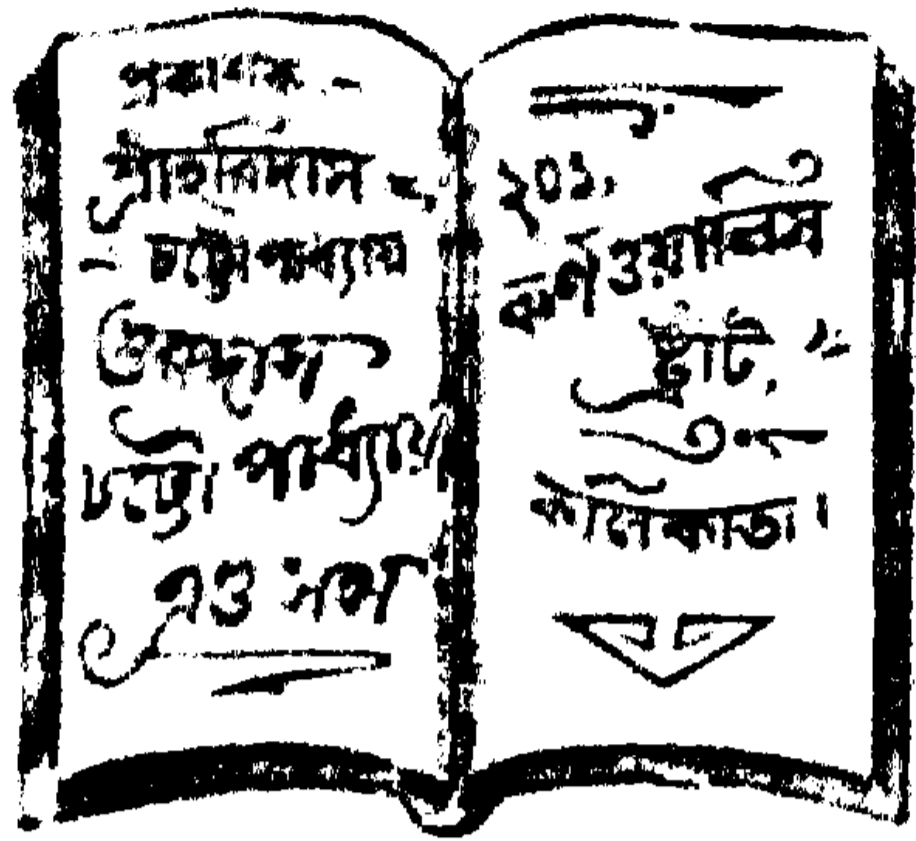 প্রকাশক —
শ্রীহরিদাস
চট্টোপাধ্যায়
গুরুদাস
চট্টোপাধ্যায়
এণ্ড সন্স
২০১,
কর্ণওয়ালিস
ষ্ট্রীট,
কলিকাতা।